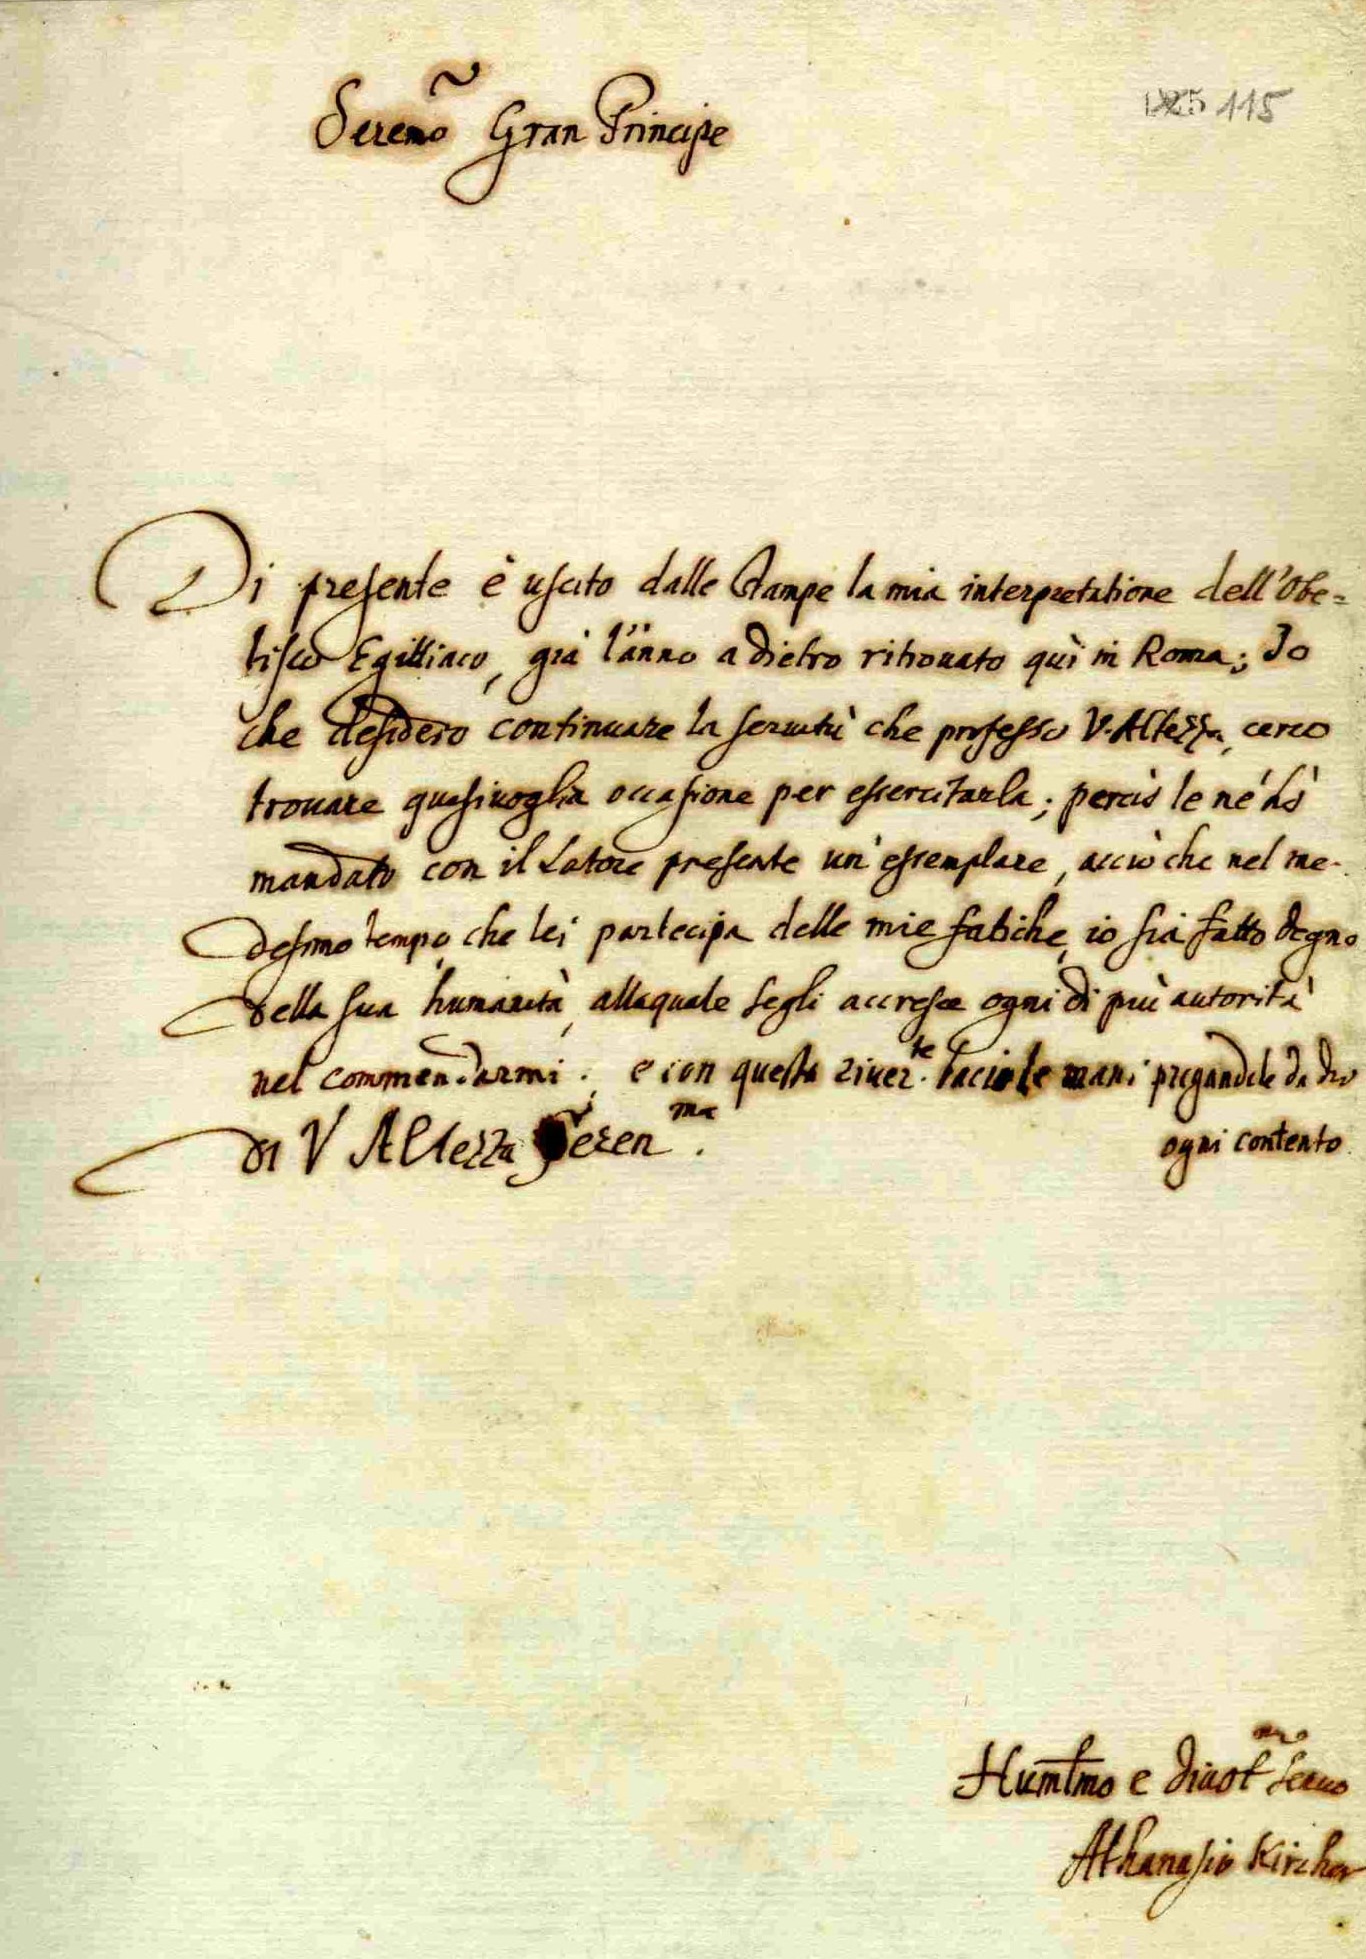 Serem̃o Gran Principe
115
Di presente è uscito dalle stampe la mia interpretatione dell'Obe=
lisco Egittiaco, già l'anno a dietro ritrouato quì in Roma; Io
che desidero continuare la seruitù che professo V. Altezza, cerco
trouare qualsiuoglia occasione per essercitarla; perciò le né hò
mandato con il Latore presente un'essemplare, acciò che nel me-
desimo tempo, che lei partecipa delle mie fatiche, io sia fatto degno
della sua humanità, allaquale segli accresce ogni dì più autorità
nel commendarmi; e con questo riuer.te bacio le mani pregandole da dio
ogni contento.
di V Altezza Seren.ma
Hum̃lmo e diuot.mo seruo
Athanasio Kircher